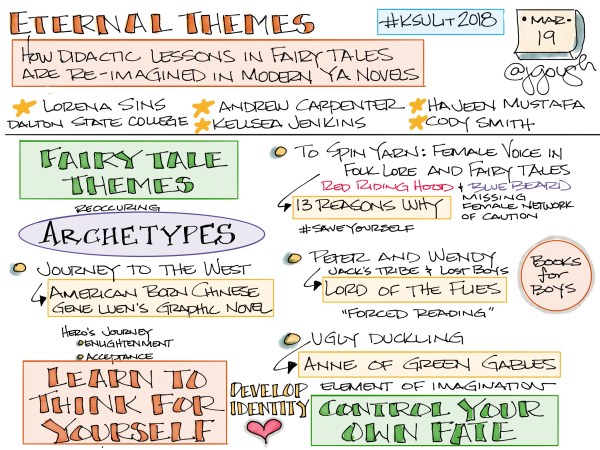 ETERNAL THEMES
#KSULit2018
MAR.
19
HOW DIDACTIC LESSONS IN FAIRY TALES
ARE RE-IMAGINED IN MODERN YA NOVELS
@jgough
LORENA SINS
ANDREW CARPENTER
HAJEEN MUSTAFA
DALTON STATE COLLEGE
KELLSEA JENKINS
CODY SMITH
FAIRY TALE
THEMES
REOCCURING
ARCHETYPES
JOURNEY TO THE WEST
AMERICAN BORN CHINESE
GENE LUEN'S GRAPHIC NOVEL
HERO'S JOURNEY
ENLIGHTENMENT
ACCEPTANCE
LEARN TO
THINK FOR
YOURSELF
DEVELOP
IDENTITY
TO SPIN YARN: FEMALE VOICE IN
FOLK LORE AND FAIRY TALES
RED RIDING HOOD + BLUE BEARD
13 REASONS WHY
MISSING
FEMALE NETWORK
OF CAUTION
#SAVEYOURSELF
PETER AND WENDY
JACK'S TRIBE & LOST BOYS
LORD OF THE FLIES
"FORCED READING"
BOOKS
for
BOYS
UGLY DUCKLING
ANNE OF GREEN GABLES
ELEMENT OF IMAGINATION
CONTROL YOUR
OWN FATE